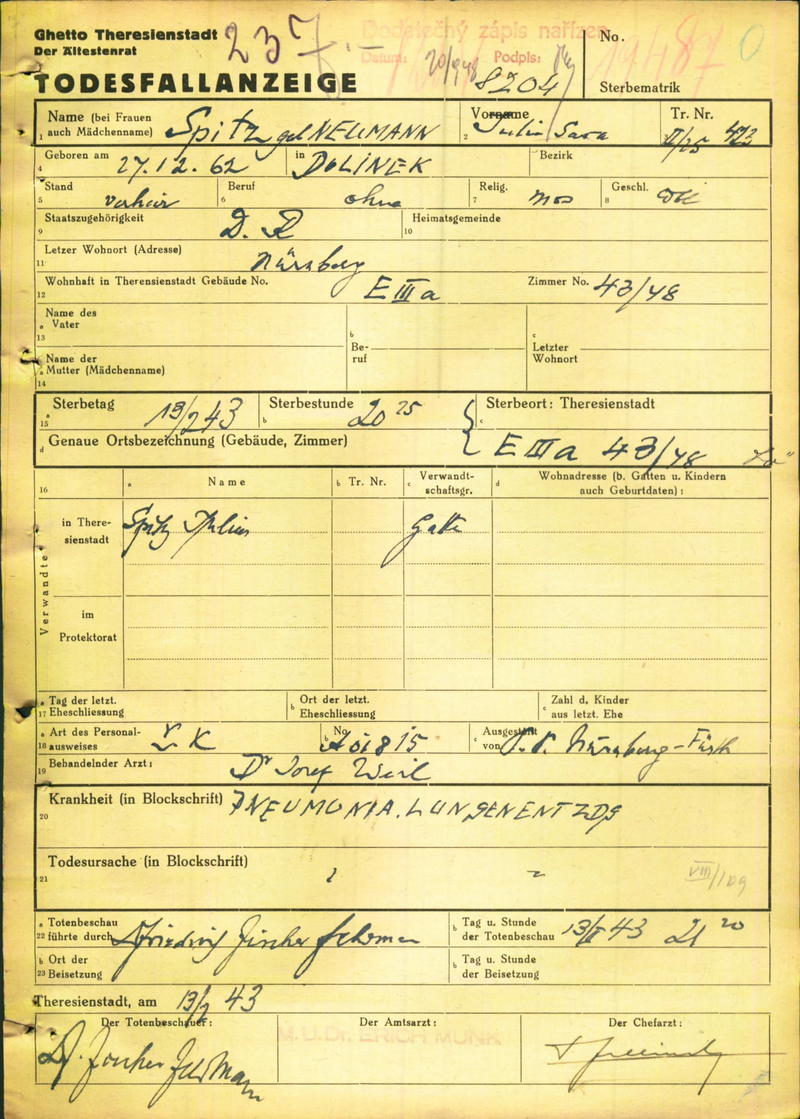 Ghetto Theresienstadt
Der Ältestenrat
237.–
Dodatečný zápis nařízen
Datum: Podpis:
TODESFALLANZEIGE
8204
No.
Sterbematrik
Name (bei Frauen auch Mädchenname) Spitz geb NEUMANN
1
Vorname Julie Sara
2
Tr. Nr. II/25 423
3
Geboren am 27.12.62 in DOLINEK Bezirk
4
Stand Beruf ohne Relig. mos Geschl.
5 6 7 8
Staatszugehörigkeit D. R Heimatsgemeinde
9 10
Letzer Wohnort (Adresse) Nürnberg
11
Wohnhaft in Theresienstadt Gebäude No. E III a Zimmer No. 43/48
12
Name des Vater
13
b Beruf
c Letzter Wohnort
Name der Mutter (Mädchenname)
14
Sterbetag 13/2 43 Sterbestunde 20 25 Sterbeort: Theresienstadt
15
Genaue Ortsbezeichnung (Gebäude, Zimmer) E III a 43/48
16 a Name b Tr. Nr. c Verwandtschaftsgr. d Wohnadresse (b. Gatten u. Kindern auch Geburtdaten):
Verwandte
in Theresienstadt Spitz Julius Gatte
im Protektorat
a Tag der letzt. b Ort der letzt. c Zahl d. Kinder
17 Eheschliessung Eheschliessung aus letzt. Ehe
a Art des Personal- b No. c Ausgestellt
18 ausweises K A01815 von P. P. Nürnberg-Fürth
Behandelnder Arzt: Dr Josef Weil
19
Krankheit (in Blockschrift) PNEUMONIA. LUNGENENTZDG
20
Todesursache (in Blockschrift)
21
VIII/109
a Totenbeschau b Tag u. Stunde
22 führte durch Friedrich Fischer b der Totenbeschau 13/II 43 21 20
b Ort der b Tag u. Stunde
23 Beisetzung der Beisetzung
Theresienstadt, am 13/2 43
Der Totenbeschauer: Der Amtsarzt: Der Chefarzt:
M.U.Dr. ERICH MUNK